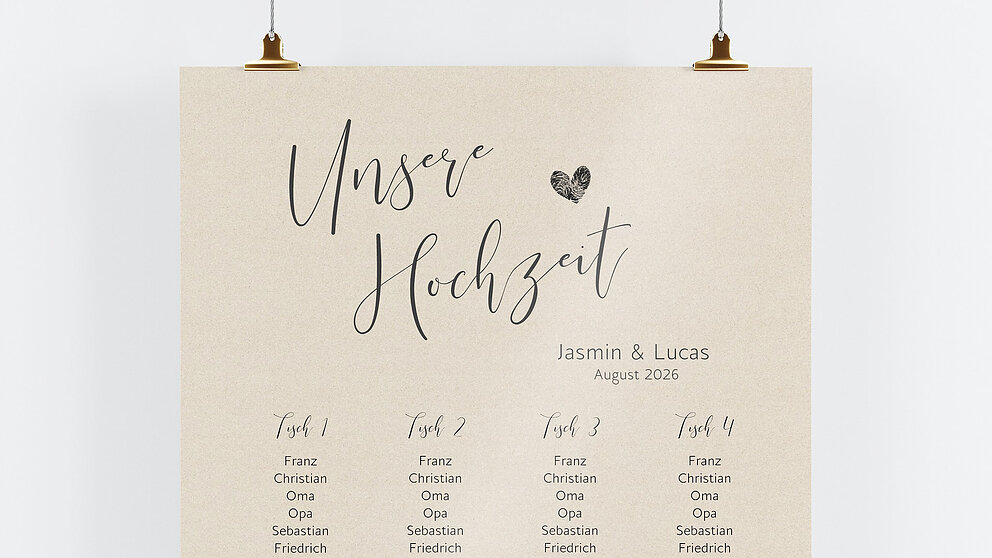 Unsere
Hochzeit
Jasmin & Lucas
August 2026
Tisch 1 Tisch 2 Tisch 3 Tisch 4
Franz Franz Franz Franz
Christian Christian Christian Christian
Oma Oma Oma Oma
Opa Opa Opa Opa
Sebastian Sebastian Sebastian Sebastian
Friedrich Friedrich Friedrich Friedrich